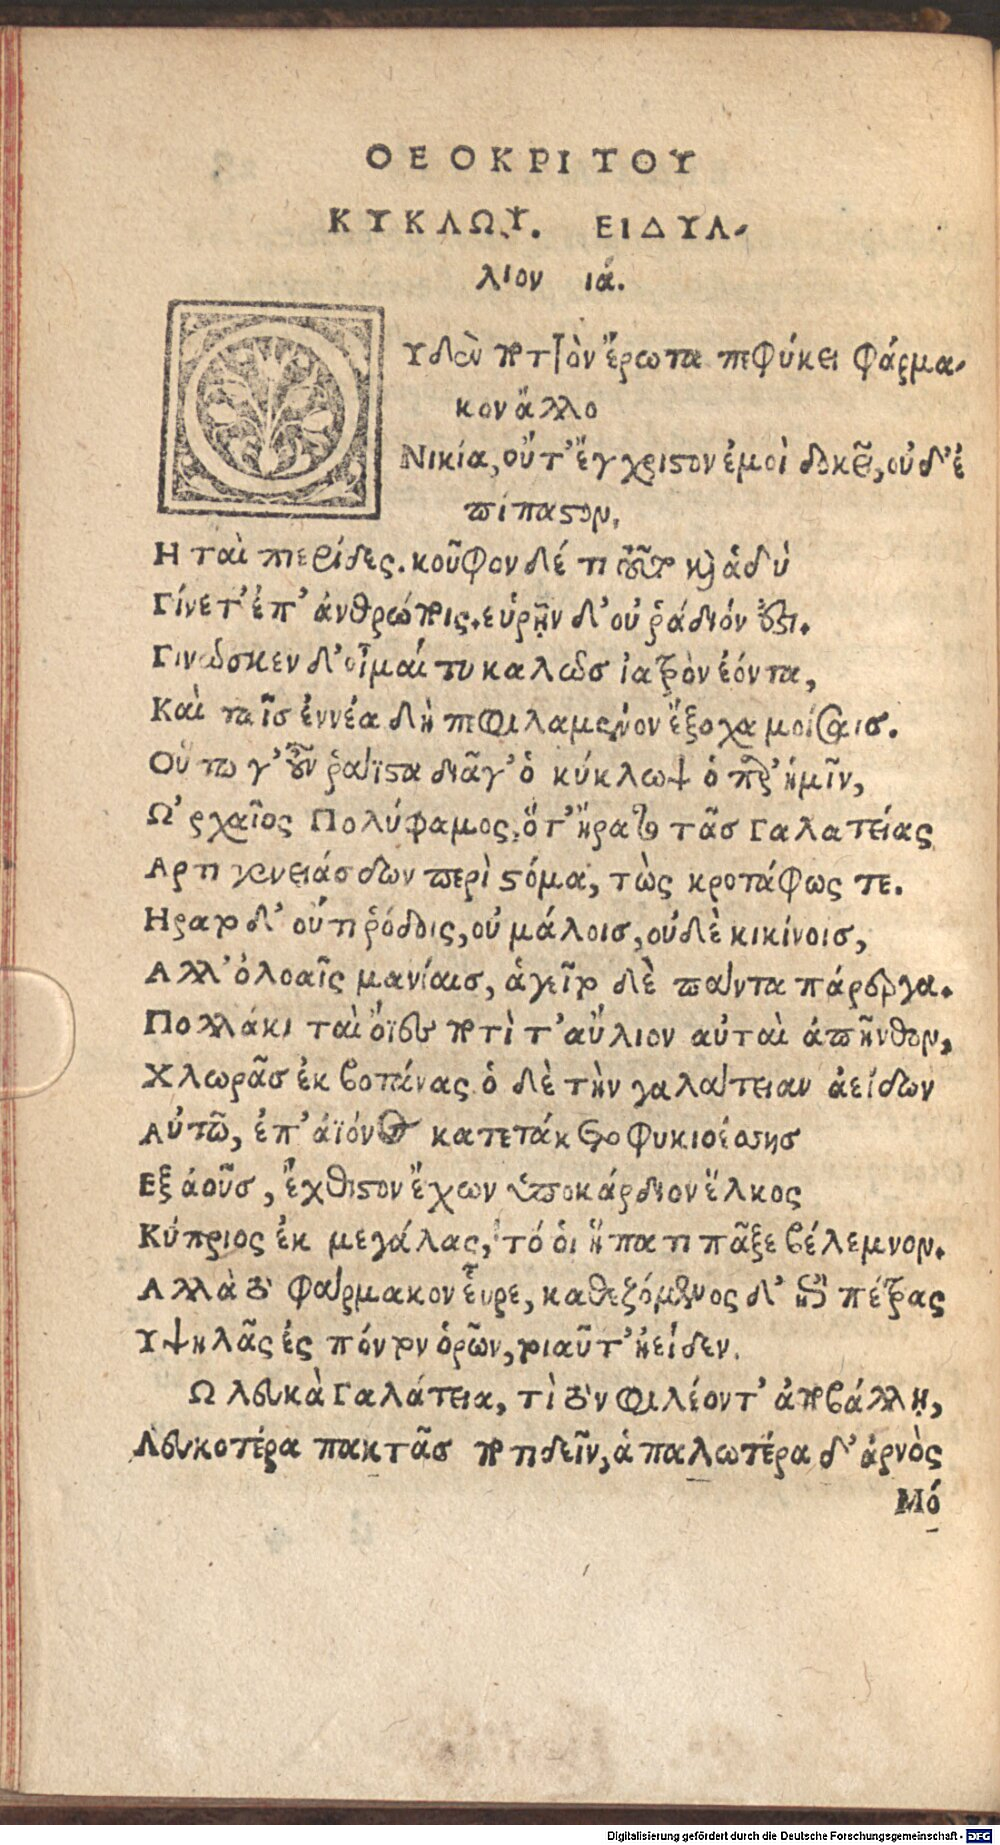 ΘΕΟΚΡΙΤΟΥ
ΚΥΚΛΩΨ. ΕΙΔΥΛ-
λιον ιά.
ΟΥδὲν ποττὸν ἔρωτα πεφύκει φάρμα-
κον ἄλλο
Νικία, οὔτ' ἔγχριστον ἐμοὶ δοκεῖ, οὐδ' ἐ
πίπαστον,
Η ταὶ πιερίδες. κοῦφον δέ τι τοῦτο καὶ ἁδὺ
Γίνετ' ἐπ' ἀνθρώποις. εὑρῆν δ' οὐ ῥάδιόν ἐστι.
Γινώσκεν δ' οἶμαί τυ καλῶσ ἰατρὸν ἐόντα,
Καὶ ταῖσ ἐννέα δὴ πεφιλαμένον ἔξοχα μοίσαισ.
Οὕτω γ' οὖν ῥάϊστα διᾶγ' ὁ κύκλωψ ὁ παρ' ἡμῖν,
Ω' ρχαῖος Πολύφαμος, ὅτ' ἤρατο τᾶσ Γαλατείας
Αρτι γενειάσδων περὶ στόμα, τὼς κροτάφως τε.
Ηρατο δ' οὔτι ῥόδοις, οὐ μάλοισ, οὐδὲ κικίνοισ,
Αλλ' ὀλοαῖς μανίαισ, ἁγεῖτο δὲ πάντα πάρεργα.
Πολλάκι ταὶ ὄϊες ποτὶ τ' αὔλιον αὐταὶ ἀπῆνθον,
Χλωρᾶσ ἐκ βοτάνας. ὁ δὲ τὴν γαλάτειαν ἀείδων
Αὐτῶ, ἐπ' ἀϊόνος κατετάκετο φυκιοέσσης
Εξ ἀοῦσ, ἔχθιστον ἔχων ὑποκάρδιον ἕλκος
Κύπριος ἐκ μεγάλας, τό οἱ ἥπατι πᾶξε βέλεμνον.
Αλλὰ τὸ φάρμακον εὗρε, καθεζόμενος δ' ἐπὶ πέτρας
Υψηλᾶς ἐς πόντον ὁρῶν, τοιαῦτ' ἠείδεν.
Ω λευκὰ Γαλάτεια, τὶ τὸν φιλέοντ' ἀποβάλλῃ,
Λευκοτέρα πακτᾶσ ποτιδεῖν, ἁπαλωτέρα δ' ἀρνὸς
Μό
Digitalisierung gefördert durch die Deutsche Forschungsgemeinschaft - DFG